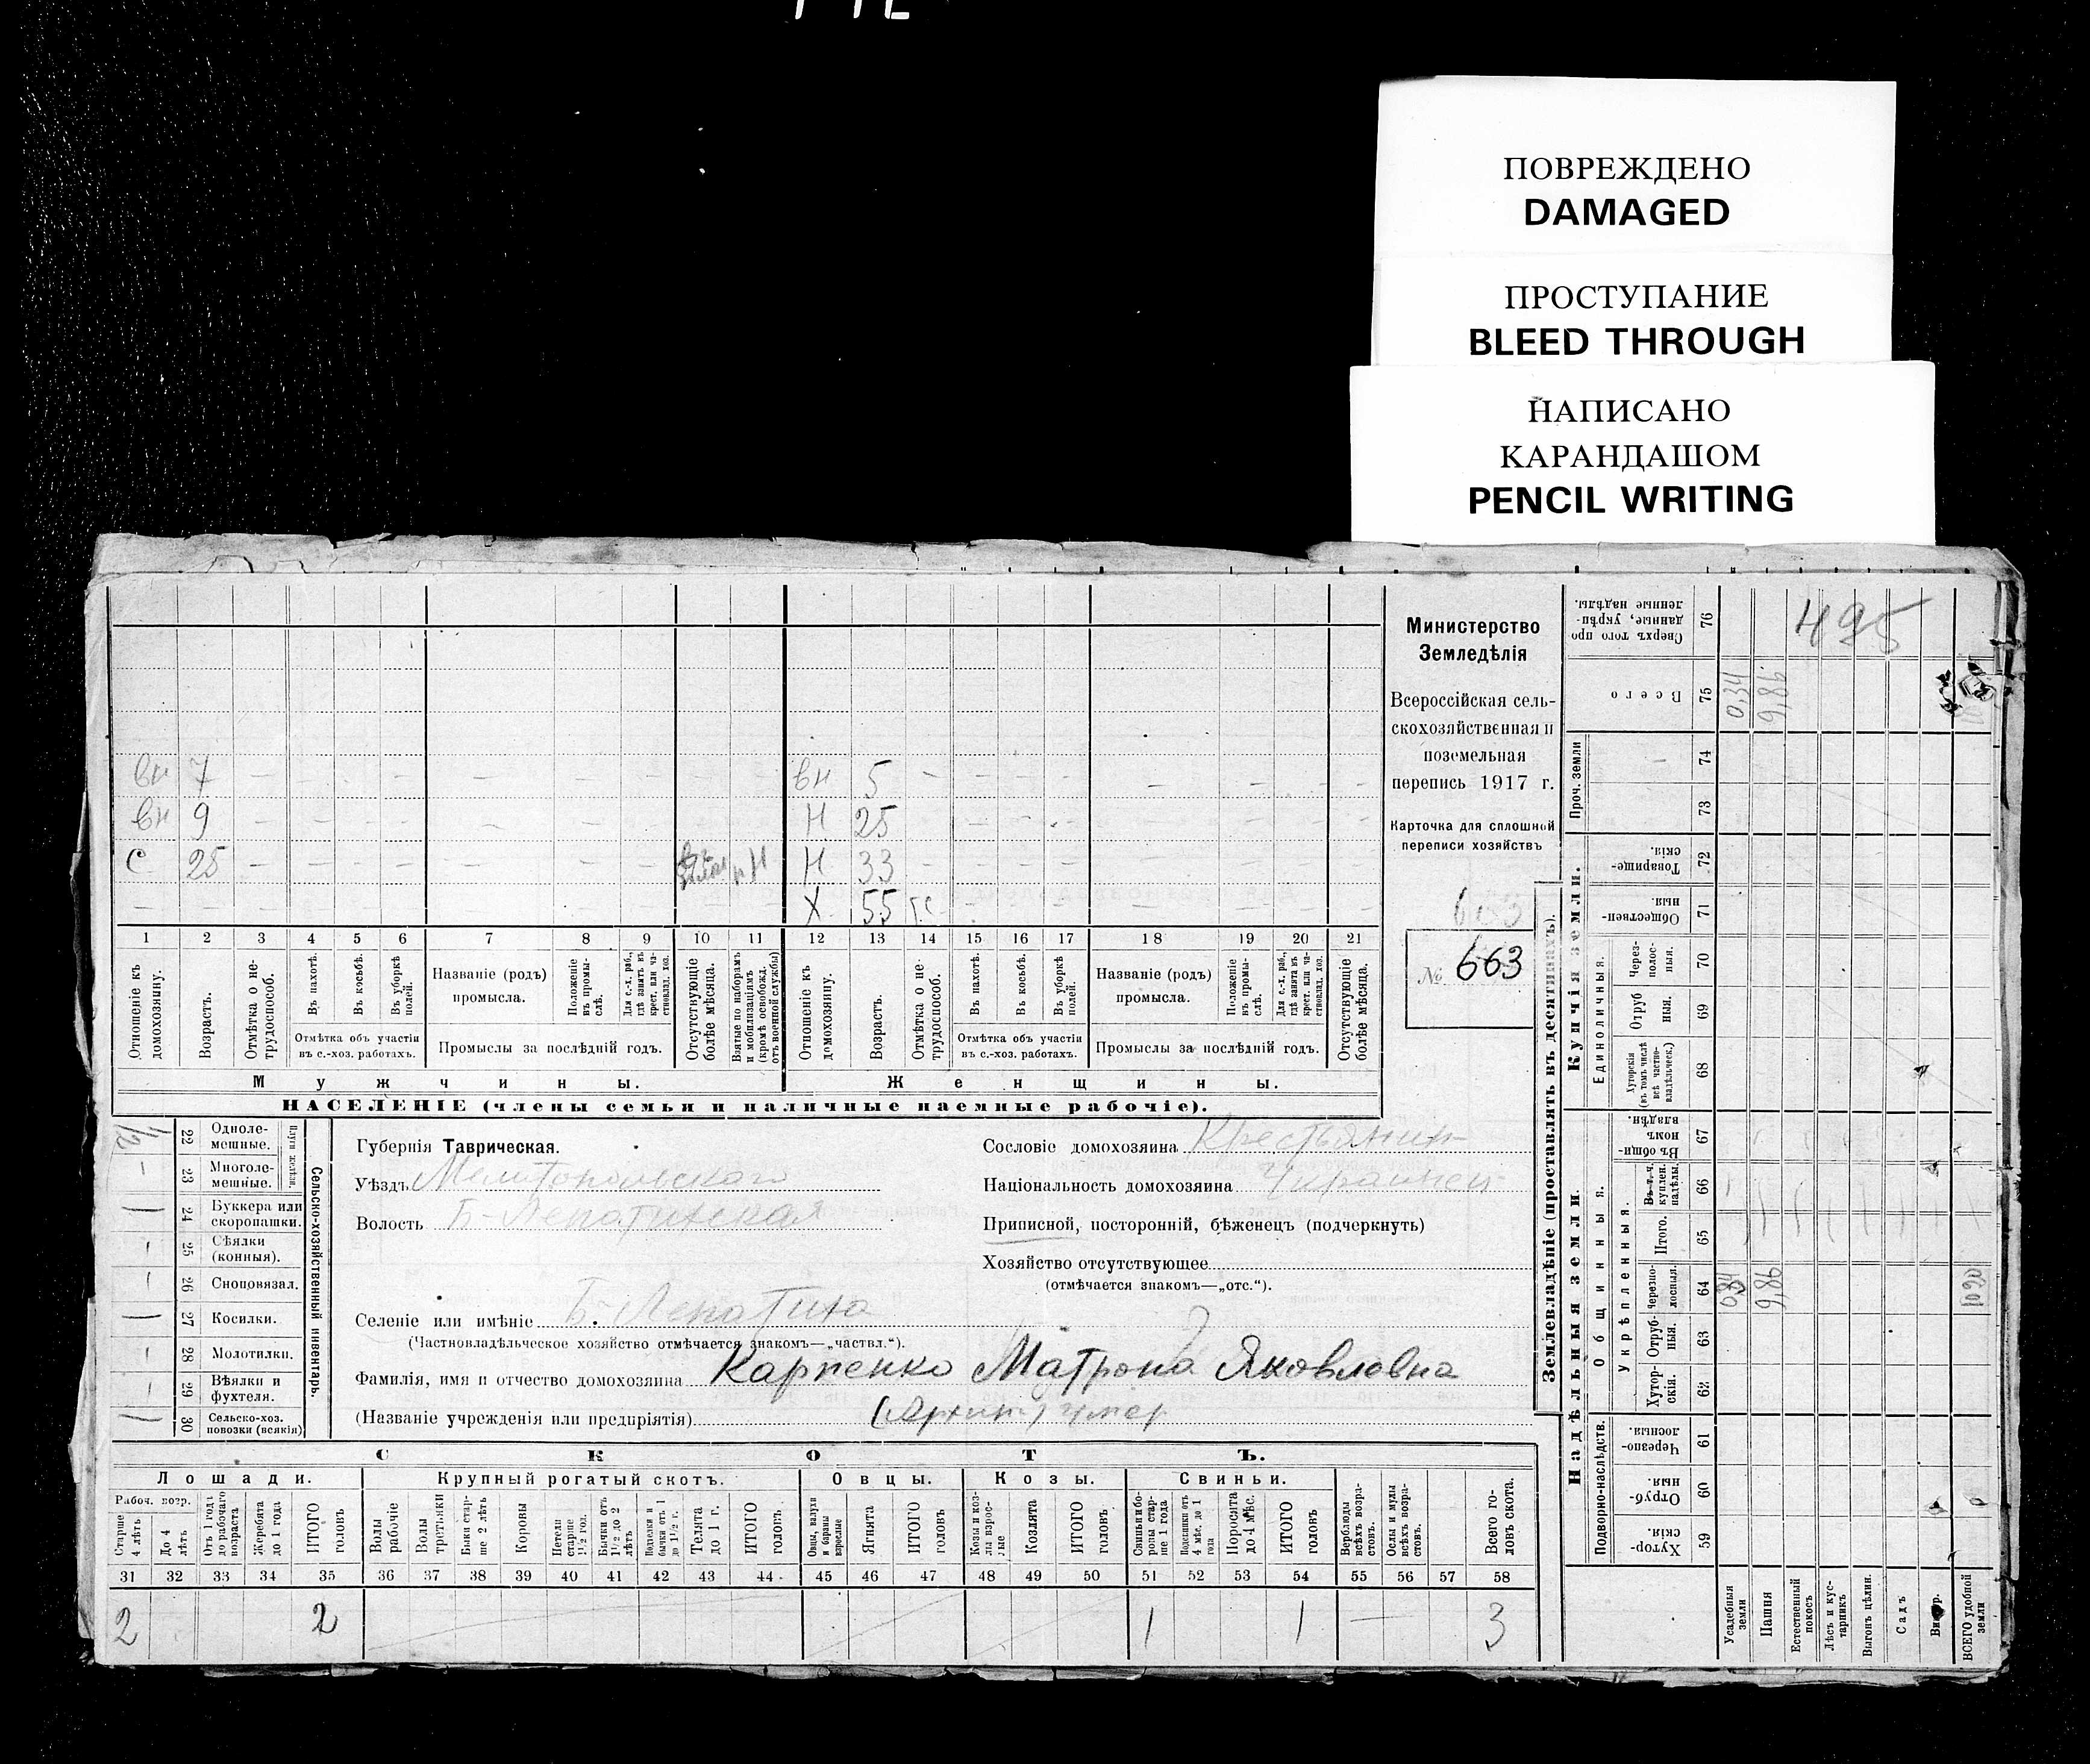 ПОВРЕЖДЕНО
DAMAGED
ПРОСТУПАНИЕ
BLEED THROUGH
НАПИСАНО
КАРАНДАШОМ
PENCIL WRITING
Министерство
Земледѣлія
Всероссійская сель-
скохозяйственная и
поземельная
перепись 1917 г.
Карточка для сплошной
переписи хозяйствъ
№ 663
495
вн 7 вн 5
вн 9 Н 25
С 25 Н 33
Х 55
1 2 3 4 5 6 7 8 9 10 11 12 13 14 15 16 17 18 19 20 21
Отношеніе къ домохозяину.
Возрастъ.
Отмѣтка о не-трудоспособ.
Въ пахотѣ.
Въ косьбѣ.
Въ уборкѣ полей.
Отмѣтка объ участіи въ с.-хоз. работахъ.
Названіе (родъ) промысла.
Положеніе въ промы-слѣ.
Для с.-х. раб., гдѣ занятъ въ крест. или ча-стновлад. хоз.
Промыслы за послѣдній годъ.
Отсутствующіе болѣе мѣсяца.
Взятые по наборамъ и мобилизаціямъ (кромѣ освобожд. отъ военной службы)
Отношеніе къ домохозяину.
Возрастъ.
Отмѣтка о не-трудоспособ.
Въ пахотѣ.
Въ косьбѣ.
Въ уборкѣ полей.
Отмѣтка объ участіи въ с.-хоз. работахъ.
Названіе (родъ) промысла.
Положеніе въ промы-слѣ.
Для с.-х. раб., гдѣ занята въ крест. или ча-стновлад. хоз.
Промыслы за послѣдній годъ.
Отсутствующіе болѣе мѣсяца.
Мужчины. Женщины.
НАСЕЛЕНІЕ (члены семьи и наличные наемные рабочіе).
Сельско-хозяйственный инвентарь.
22 Одноле-мешные.
23 Многоле-мешные.
24 Буккера или скоропашки.
25 Сѣялки (конныя).
26 Сноповязал.
27 Косилки.
28 Молотилки.
29 Вѣялки и фухтеля.
30 Сельско-хоз. повозки (всякія)
Губернія Таврическая.
Уѣздъ Мелитопольскаго
Волость Б-Лепатихская
Селеніе или имѣніе Б. Лепатиха
(Частновладѣльческое хозяйство отмѣчается знакомъ—„частвл.“).
Фамилія, имя и отчество домохозяина Карпенко Матрона Яковлевна
(Названіе учрежденія или предпріятія) (Архип) умер
Сословіе домохозяина Крестьянин
Національность домохозяина Украинец
Приписной, посторонній, бѣженецъ (подчеркнуть)
Хозяйство отсутствующее
(отмѣчается знакомъ—„отс.“).
СКОТЪ.
Лошади. Крупный рогатый скотъ. Овцы. Козы. Свиньи.
Рабоч. возр.
Старше 4 лѣтъ
До 4 лѣтъ
Отъ 1 года до рабочаго возраста
Жеребята до 1 года
ИТОГО головъ
Волы рабочіе
Волы третьяки
Быки стар-ше 2 лѣтъ
Коровы
Нетели старше 1½ год.
Бычки отъ 1½ до 2 лѣтъ
Телята до 1 г.
ИТОГО головъ
Ягнята
ИТОГО головъ
Козлята
ИТОГО головъ
Поросята до 4 мѣс.
ИТОГО головъ
Верблюды всѣхъ возра-стовъ.
Ослы и мулы всѣхъ возра-стовъ.
Всего го-ловъ скота.
31 32 33 34 35 36 37 38 39 40 41 42 43 44 45 46 47 48 49 50 51 52 53 54 55 56 57 58
2 2 1 1 3
Землевладѣніе (проставлять въ десятинахъ).
Надѣльныя земли. Купчія земли.
Проч. земли
Подворно-наслѣдств.
Общинныя.
Укрѣпленныя.
Единоличныя.
76 Сверхъ того про данные, укрѣп-ленные надѣлы.
75 Всего 0,34 9,86
74
73
72 Товарище-скія.
71 Обществен-ныя.
70 Через-полос-ныя.
69 Отруб ныя.
68 Хуторскія (въ томъ числѣ всѣ частно-владѣльческ.)
67 Въ общин-номъ владѣн.
66 Въ т. ч. куплен. надѣлы.
65 Итого.
64 Черезпо-лосныя. 0,34 9,86 10,20
63 Отруб-ныя.
62 Хутор-скія.
61 Черезпо-лосныя.
60 Отруб-ныя.
59 Хутор-скія.
Усадебныя земли
Пашня
Естественный покосъ
Лѣсъ и кус-тарникъ
Выгонъ цѣлин.
Садъ
ВСЕГО удобной земли